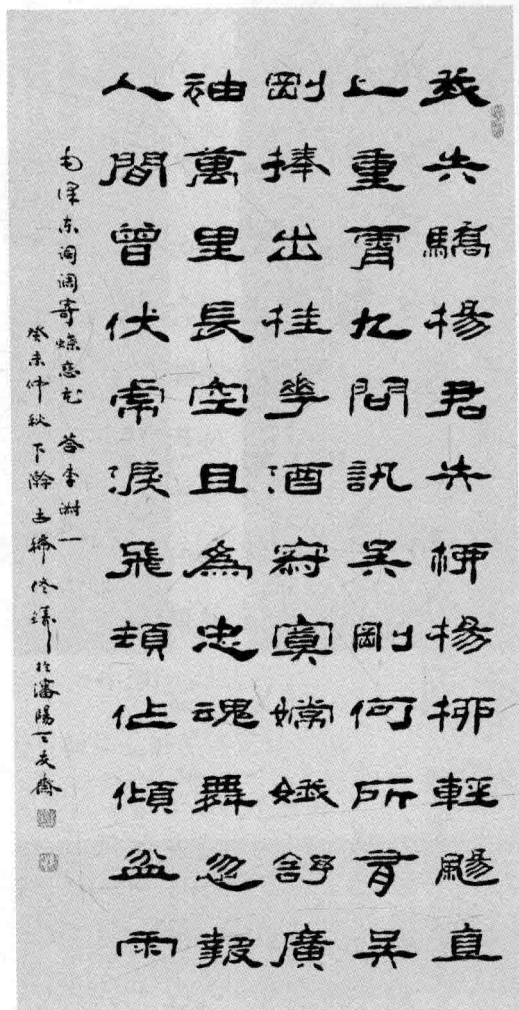 我失驕楊君失柳楊柳輕颺直
上重霄九問訊吳剛何所有吳
剛捧出桂華酒寂寞嫦娥舒廣
袖萬里長空且為忠魂舞忽報
人間曾伏虎淚飛頓作傾盆雨
毛泽东词阕寄蝶恋花 答李淑一
癸未仲秋下瀚古稀佟於瀋陽友齋